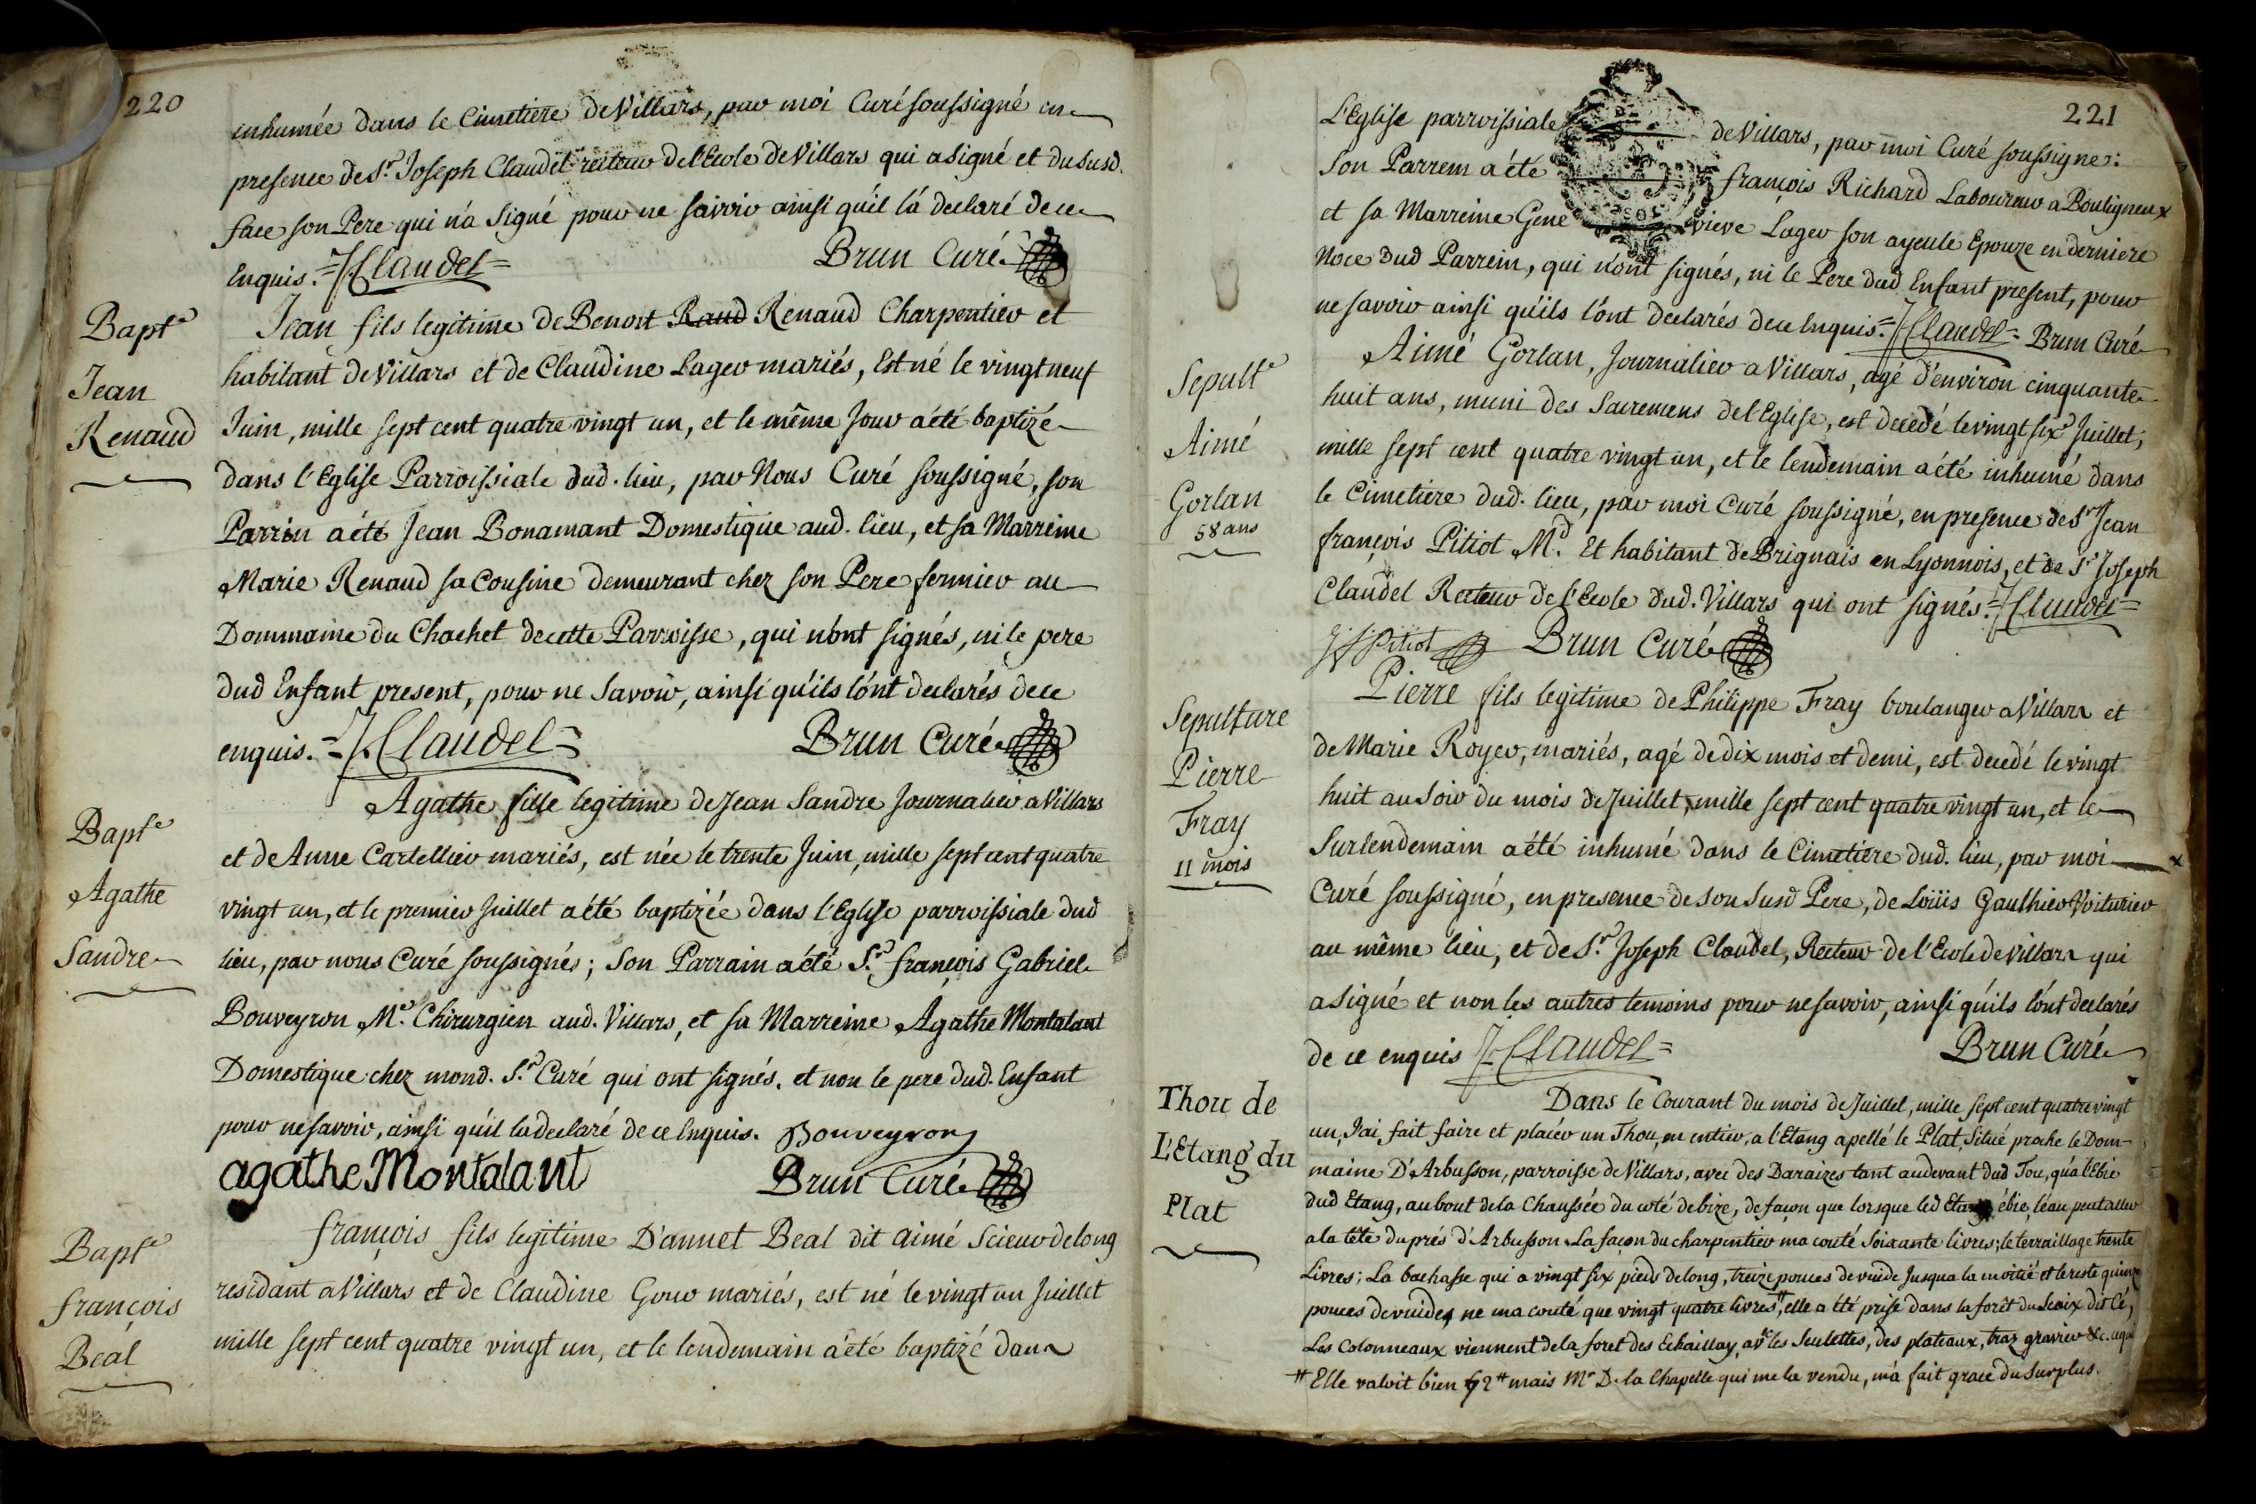 220
inhumée dans le Cimetiere de Villars, par moi Curé soussigné en
presence de Sr. Joseph Claudel recteur de l'Ecole de Villars qui a signé et du susd.
face son Pere qui n'a signé pour ne savoir ainsi qu'il l'a declaré de ce
Enquis. = J. Claudel = Brun Curé
Bapt.e
Jean
Renaud
Jean fils legitime de Benoit Raud Renaud Charpentier et
habitant de Villars et de Claudine Lager mariés, Est né le vingt neuf
Juin, mille sept cent quatre vingt un, et le même Jour a été baptizé
dans l'Eglise Parroissiale dud. lieu, par Nous Curé soussigné, son
Parrin a été Jean Bonamant Domestique aud. lieu, et sa Marreine
Marie Renaud sa Cousine demeurant chez son Pere fermier au
Dommaine du Chachet de cette Parroisse, qui n'ont signés, ni le pere
dud Enfant present, pour ne Savoir, ainsi qu'ils l'ont declarés de ce
enquis. = J. Claudel = Brun Curé
Bapt.e
Agathe
Sandre
Agathe fille legitime de Jean Sandre Journalier a Villars
et de Anne Cartellier mariés, est née le trente Juin, mille sept cent quatre
vingt un, et le premier Juillet a été baptizée dans l'Eglise parroissiale dud
lieu, par nous Curé soussignés; Son Parrain a été Sr. françois Gabriel
Bouveyron Me. Chirurgien aud. Villars, et sa Marreine Agathe Montalant
Domestique chez mond. Sr. Curé qui ont signés. et non le pere dud. Enfant
pour ne savoir, ainsi qu'il la declaré de ce Enquis. Bouveyron
agathe Montalant Brun Curé
Bapt.e
françois
Béal
françois fils legitime D'annet Beal dit Aimé Scieur de long
residant a Villars et de Claudine Gour mariés, est né le vingt un Juillet
mille sept cent quatre vingt un, et le lendemain a été baptizé dans
221
L'Eglise parroissiale de Villars, par moi Curé soussigné:
Son Parrein a été françois Richard Laboureur a Bouligneux
et sa Marreine Gene vieve Lager son ayeule Epouze en derniere
Noce dud Parrein, qui n'ont signés, ni le Pere dud Enfant present, pour
ne savoir ainsi qu'ils l'ont declarés de ce Enquis. = J. Claudel = Brun Curé
Sepult.e
Aimé
Gorlan
58 ans
Aimé Gorlan, Journalier a Villars, agé d'environ cinquante
huit ans, muni des Sacremens de l'Eglise, est decedé le vingt six Juillet,
mille sept cent quatre vingt un, et le lendemain a été inhumé dans
le Cimetiere dud. lieu, par moi Curé soussigné, en presence de Sr. Jean
françois Pitiot Md. Et habitant de Brignais en Lyonnois, et de Sr. Joseph
Claudel Recteur de l'Ecole dud. Villars qui ont signés. = J. Claudel =
J f Pitiot Brun Curé
Sepulture
Pierre
Fray
11 mois
Pierre fils legitime de Philippe Fray boulanger a Villars et
de Marie Royer, mariés, agé de dix mois et demi, est decedé le vingt
huit au Soir du mois de Juillet, mille sept cent quatre vingt un, et le
Surlendemain a été inhumé dans le Cimetiere dud. lieu, par moi
Curé soussigné, en presence de son Susd Pere, de Loüis Gaulhier Voiturier
au même lieu, et de Sr. Joseph Claudel, Recteur de l'Ecole de Villars qui
a signé et non les autres temoins pour ne savoir, ainsi qu'ils l'ont declarés
de ce enquis J. Claudel = Brun Curé
Thou de
L'Etang du
Plat
Dans le Courant du mois de Juillet, mille sept cent quatre vingt
un, J'ai fait faire et placér un Thou, en entier, a l'Etang apellé le Plat, Situé proche le Dom-
maine D'Arbusson, parroisse de Villars, avec des Daraizes tant au devant dud Tou, qu'a l'Ebie
dud Etang, au bout de la Chaussée du coté de bize, de façon que lorsque led Etang ébie, l'éau peut aller
a la tête du prés d'Arbusson. La façon du charpentier ma couté Soixante livres; le terraillage trente
Livres; La bachasse qui a vingt six pieds de long, treize pouces de vuide Jusqua la moitié et le reste quinze
pouces de vuide, ne ma couté que vingt quatre livres #, elle a été prise dans la forêt du
Les Colonneaux viennent de la foret des Echaillay, avec les Seulettes, des plateaux, traz gravier &c.
# Elle valoit bien 72 # mais Mr. D. la Chapelle qui me la vendu, m'a fait grace du Surplus.